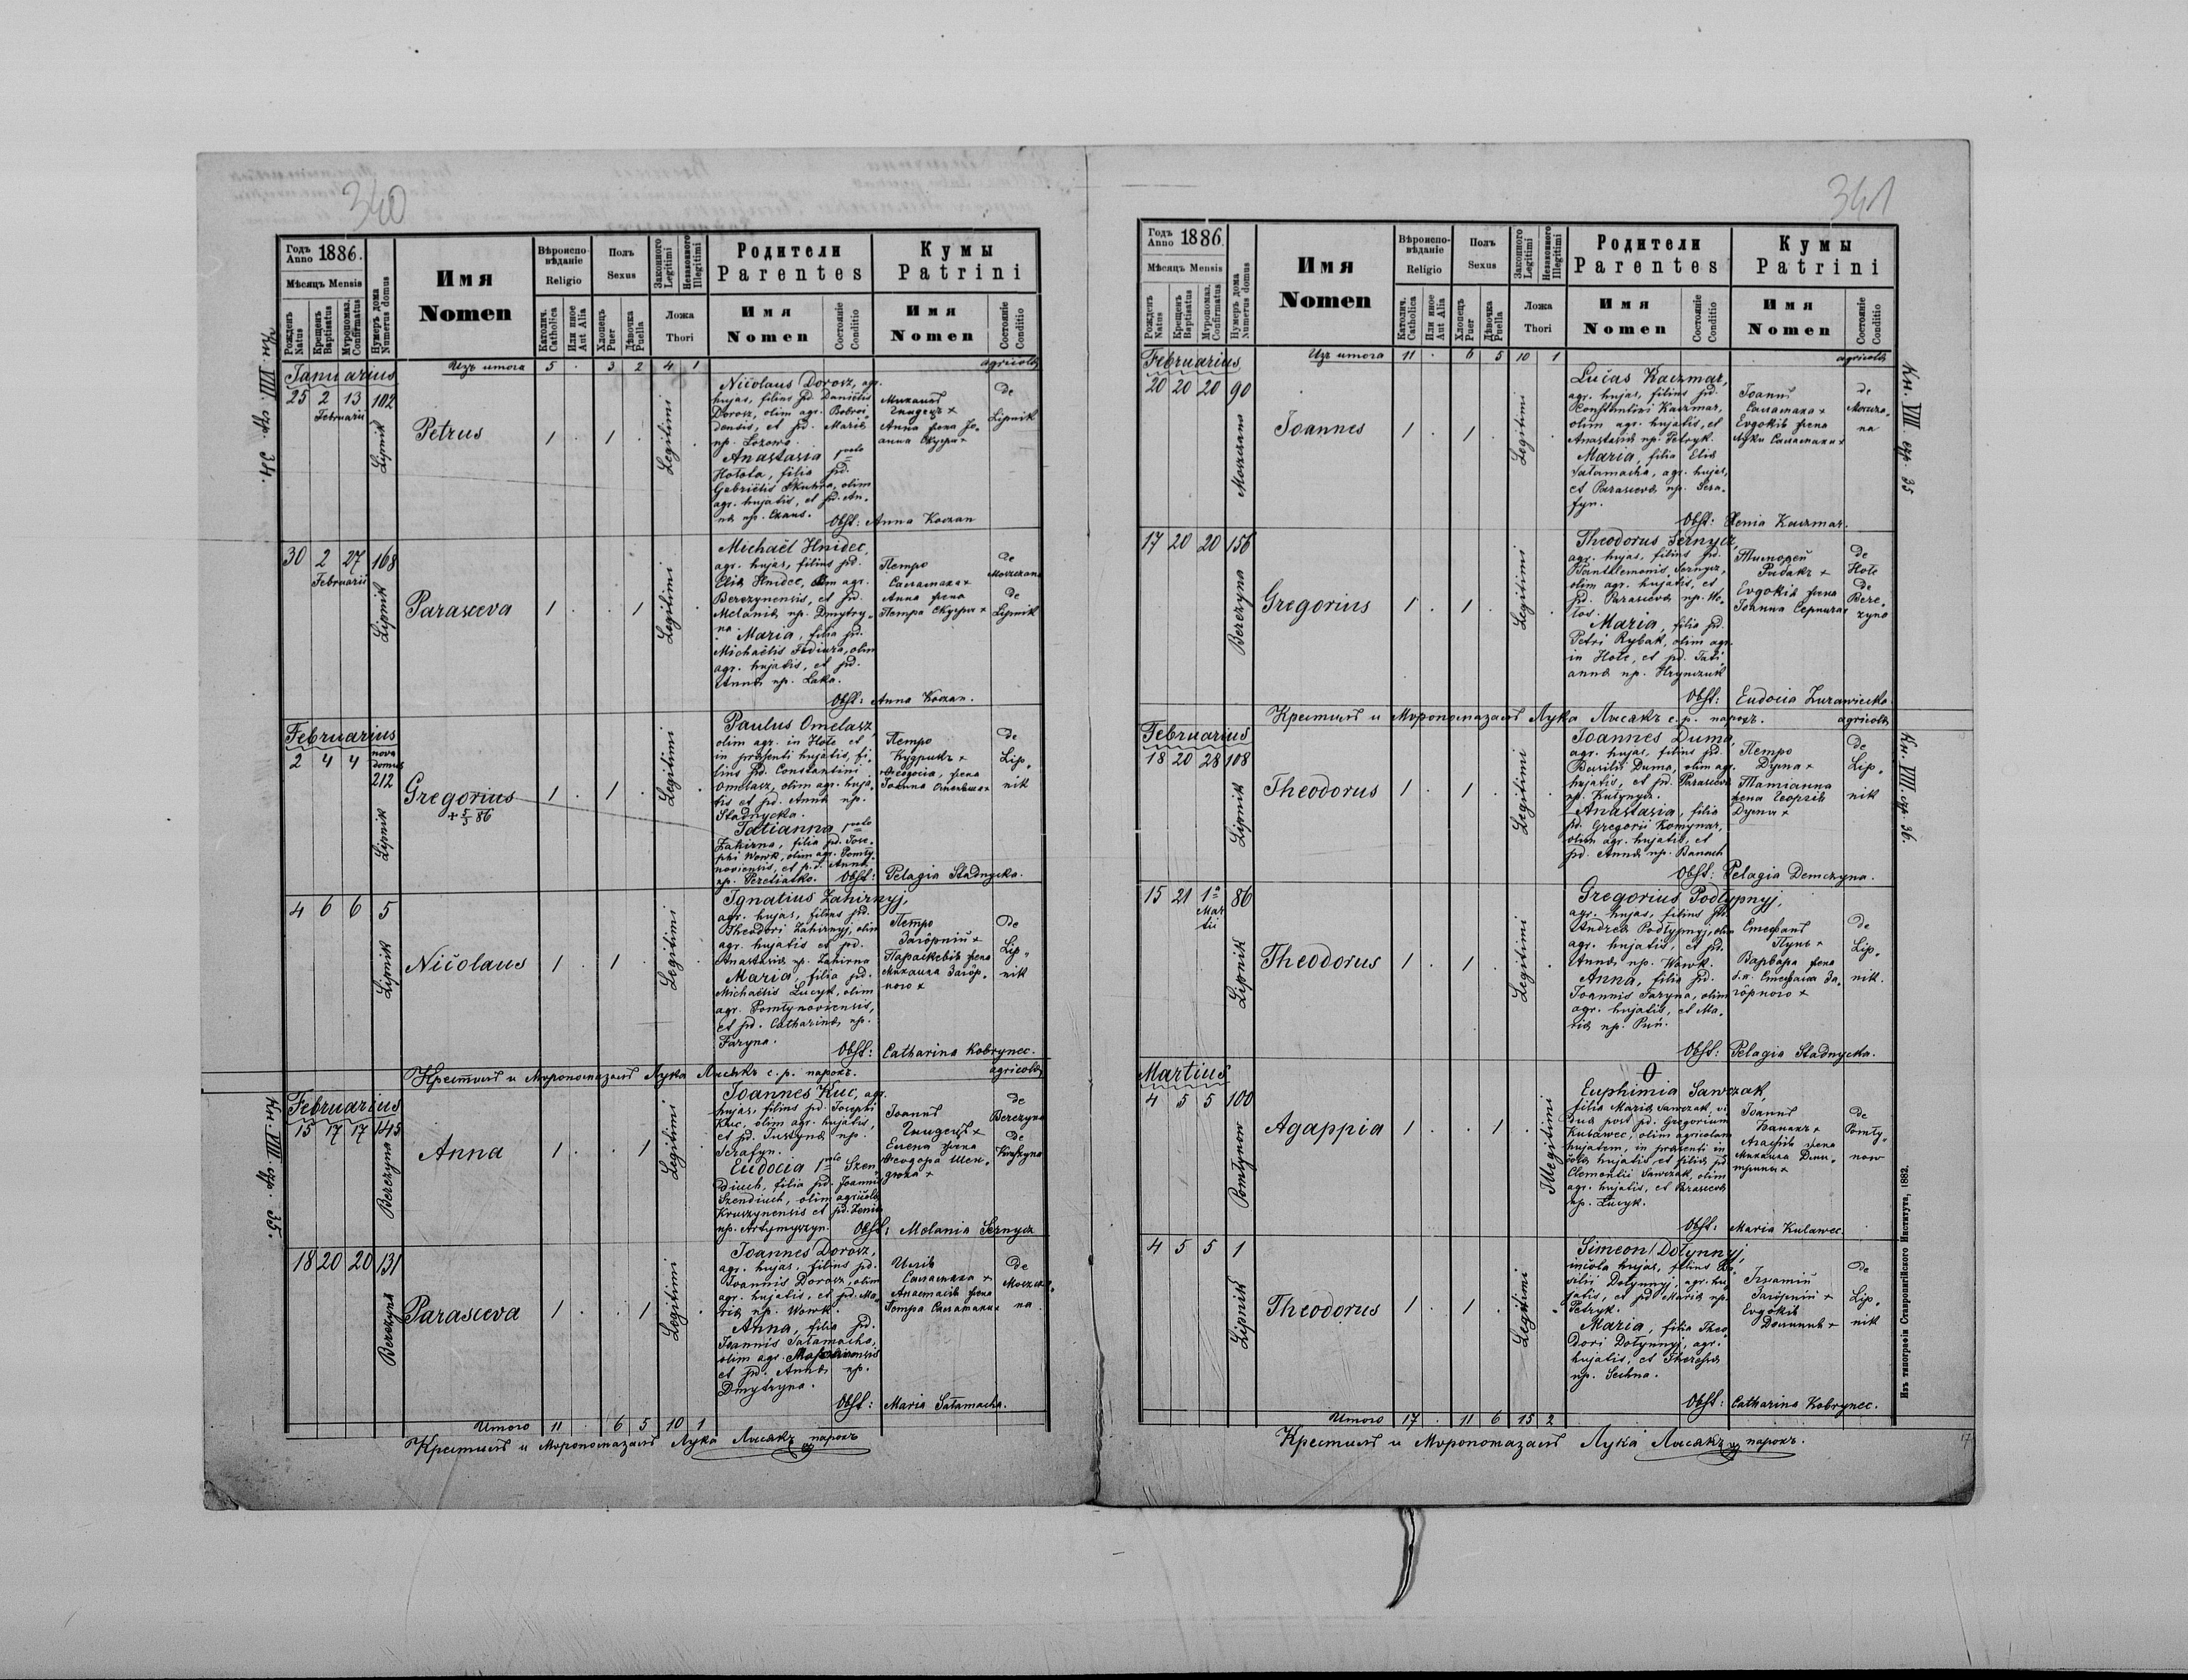 340
Кн. VIII. стр. 34.
Годъ Anno 1886.
Мѣсяцъ Mensis
Рожденъ Natus
Крещенъ Baptisatus
Мѵропомаз. Confirmatus
Нумеръ дома Numerus domus
Имя
Nomen
Вѣроиспо-
вѣданіе
Religio
Католич. Catholica
Или иное Aut Alia
Полъ
Sexus
Хлопець Puer
Дѣвочка Puella
Законного Legitimi
Незаконного Illegitimi
Ложа
Thori
Родители
Parentes
Имя
Nomen
Состояніе Conditio
Кумы
Patrini
Имя
Nomen
Состояніе Conditio
Januarius
Изъ итога 5 . 3 2 4 1
agricolæ
25 2 13 102
Februarii
Lipnik
Petrus
1 . 1 .
Legitimi
Nicolaus Dorosz, agr.
hujas, filius pd. Danielis
Dorosz, olim agr. Bobroi-
densis, et pd. Mariæ
np. Łozowa.
Anastasia
Hotota, filia pd.
Gabrielis Skuhra, olim
agr. hujatis, et pd. An-
næ np.
Михаилъ
Гнидецъ +
Анна жена Іо-
анна Скугра +
de
Lipnik
Obst: Anna Koczan
30 2 27 168
Februarii
Lipnik
Parasceva
1 . . 1
Legitimi
Michaël Hnidec,
agr. hujas, filius pd.
Eliæ Hnidec, olim agr.
Berezynensis, et pd.
Melaniæ np. Dmytry-
na.
Maria, filia pd.
Michaëlis Fediura, olim
agr. hujatis, et pd.
Annæ np. Laka.
Петро
Саламаха +
Анна жена
Петра Скугра +
de
Moszczana
de
Lipnik
Obst: Anna Koczan.
Februarius
2 4 4 nova
domus
212
Lipnik
Gregorius
+ 5/3 86
1 . 1 .
Legitimi
Paulus Omelasz,
olim agr. in Hole et
in præsenti hujatis, fi-
lius pd. Constantini
Omelasz, olim agr. huja-
tis et pd. Annæ np.
Stadnycka.
Tatianna
Zahirna, filia pd. Jose-
phi Wowk, olim agr. Pomły-
noviensis, et pd. Annæ
np. Peretiatko.
Петро
Кудрикъ +
Ѳеодосія, жена
Іоанна Омеляша +
de
Lip-
nik
Obst: Pelagia Stadnycka.
4 6 6 5
Lipnik
Nicolaus
1 . 1 .
Legitimi
Ignatius Zahirnyj,
agr. hujas, filius pd.
Theodori Zahirnyj, olim
agr. hujatis et pd.
Anastasiæ np. Zahirna
Maria, filia pd.
Michaëlis Lucyk, olim
agr. Pomłynoviensis,
et pd. Catharinæ np.
Faryna.
Петро
Загôрній +
Параскевія жена
Михаила Загôр-
ного +
de
Lip-
nik
Obst: Catharina Kobrynec.
Крестилъ и Мѵропомазалъ Лука Лисякъ с.р. парохъ.
agricolæ
Кн. VIII стр. 35.
Februarius
15 17 17 145
Berezyna
Anna
1 . . 1
Legitimi
Joannes Kuc, agr.
hujas, filius pd. Josephi
Kuc, olim agr. hujatis,
et pd. Justynæ np.
Serafyn.
Eudocia Szen-
diuch, filia pd. Joannis
Szendiuch, olim agricolæ
Kruszynensis et pd. Xeniæ
np. Artymyszyn.
Іоаннъ
Гнидецъ +
Елена жена
Ѳеодора Шен-
дюха +
de
Berezyna
de
Kruszyna
Obst: Melania Sernycz
18 20 20 131
Berezyna
Parasceva
1 . . 1
Legitimi
Joannes Dorosz,
agr. hujas, filius pd.
Joannis Dorosz, olim
agr. hujatis, et pd. Ma-
riæ np. Wowk.
Anna, filia pd.
Joannis Sałamacha,
olim agr.
et pd. Annæ np.
Dmytryna.
Илія
Саламаха +
Анастасія жена
Петра Саламахи +
de
Moszcza-
na
Obst: Maria Sałamacha.
Итого 11 . 6 5 10 1
Крестилъ и Мѵропомазалъ Лука Лисякъ парохъ
341
Годъ Anno 1886.
Мѣсяцъ Mensis
Рожденъ Natus
Крещенъ Baptisatus
Мѵропомаз. Confirmatus
Нумеръ дома Numerus domus
Имя
Nomen
Вѣроиспо-
вѣданіе
Religio
Католич. Catholica
Или иное Aut Alia
Полъ
Sexus
Хлопець Puer
Дѣвочка Puella
Законного Legitimi
Незаконного Illegitimi
Ложа
Thori
Родители
Parentes
Имя
Nomen
Состояніе Conditio
Кумы
Patrini
Имя
Nomen
Состояніе Conditio
Кн. VIII. стр. 35
Februarius
Изъ итога 11 . 6 5 10 1
agricolæ
20 20 20 90
Moszczana
Joannes
1 . 1 .
Legitimi
Lucas Kaczmar,
agr. hujas, filius pd.
Constantini Kaczmar,
olim agr. hujatis, et
Anastasiæ np. Petryk.
Maria, filia Eliæ
Sałamacha, agr. hujas,
et Parascevæ np. Sera-
fyn.
Іоаннъ
Саламаха +
Евдокія жена
Луки Саламахи +
de
Moszcza-
na
Obst: Xenia Kaczmar.
17 20 20 156
Berezyna
Gregorius
1 . 1 .
Legitimi
Theodorus Sernycz,
agr. hujas, filius pd.
Panthlemonis Sernycz,
olim agr. hujatis, et
pd. Parascevæ np. Wo-
łos.
Maria, filia pd.
Petri Rybak, olim agr.
in Hole, et pd. Tati-
annæ np. Hrynczuk
Тимоѳей
Рибакъ +
Евдокія жена
Іоанна Сернича +
de
Hole
de
Bere-
zyna
Obst: Eudocia Zurawicka.
Крестилъ и Мѵропомазалъ Лука Лисякъ с.р. парохъ.
agricolæ
Кн. VIII. стр. 36.
Februarius
18 20 28 108
Lipnik
Theodorus
1 . 1 .
Legitimi
Joannes Duma,
agr. hujas, filius pd.
Basilii Duma, olim agr.
hujatis, et pd. Parascevæ
np. Kutynycz.
Anastasia, filia
pd. Gregorii Komynar,
olim agr. hujatis, et
pd. Annæ np. Banach
Петро
Дума +
Татианна
жена Георгія
Дума +
de
Lip-
nik
Obst: Pelagia Demczyna.
15 21 1ª 86
Mar
tii
Lipnik
Theodorus
1 . 1 .
Legitimi
Gregorius Podłypnyj,
agr. hujas, filius pd.
Andreæ Podłypnyj, olim
agr. hujatis, et pd.
Annæ np. Wowk.
Anna, filia pd.
Joannis Faryna, olim
agr. hujatis, et Ma-
riæ np. Puń.
Стефанъ
Пунь +
Варвара жена
Стефана За-
гôрного +
de
Lip-
nik.
Obst: Pelagia Stadnycka.
Martius
4 5 5 100
Pomłynow
Agappia
1 . . 1
Illegitimi
O
Euphimia Sawczak,
filia Mariæ Sawczak, vi-
duæ post pd. Gregorium
Kulawec, olim agricolam
hujatem, in præsenti in-
colæ hujatis, et filiæ pd.
Clementii Sawczak, olim
agr. hujatis, et Parascevæ
np. Lucyk.
Іоаннъ
Банахъ +
Агафія жена
Михаила Дми-
трина +
de
Pomły-
now
Obst: Maria Kulawec.
4 5 5 1
Lipnik
Theodorus
1 . 1 .
Legitimi
Simeon Dołynnyj,
incola hujas, filius Ba-
silii Dołynnyj, agr. hu-
jatis, et pd. Mariæ np.
Petryk.
Maria, filia Theo-
dori Dołynnyj, agr.
hujatis, et Theresiæ
np. Sechna.
Игнатій
Загôрній +
Евдокія
Долинна +
de
Lip-
nik
Obst: Catharina Kobrynec.
Итого 17 . 11 6 15 2
Крестилъ и Мѵропомазалъ Лука Лисякъ парохъ.
Изъ типографіи Ставропигійского Института, 1882.
17